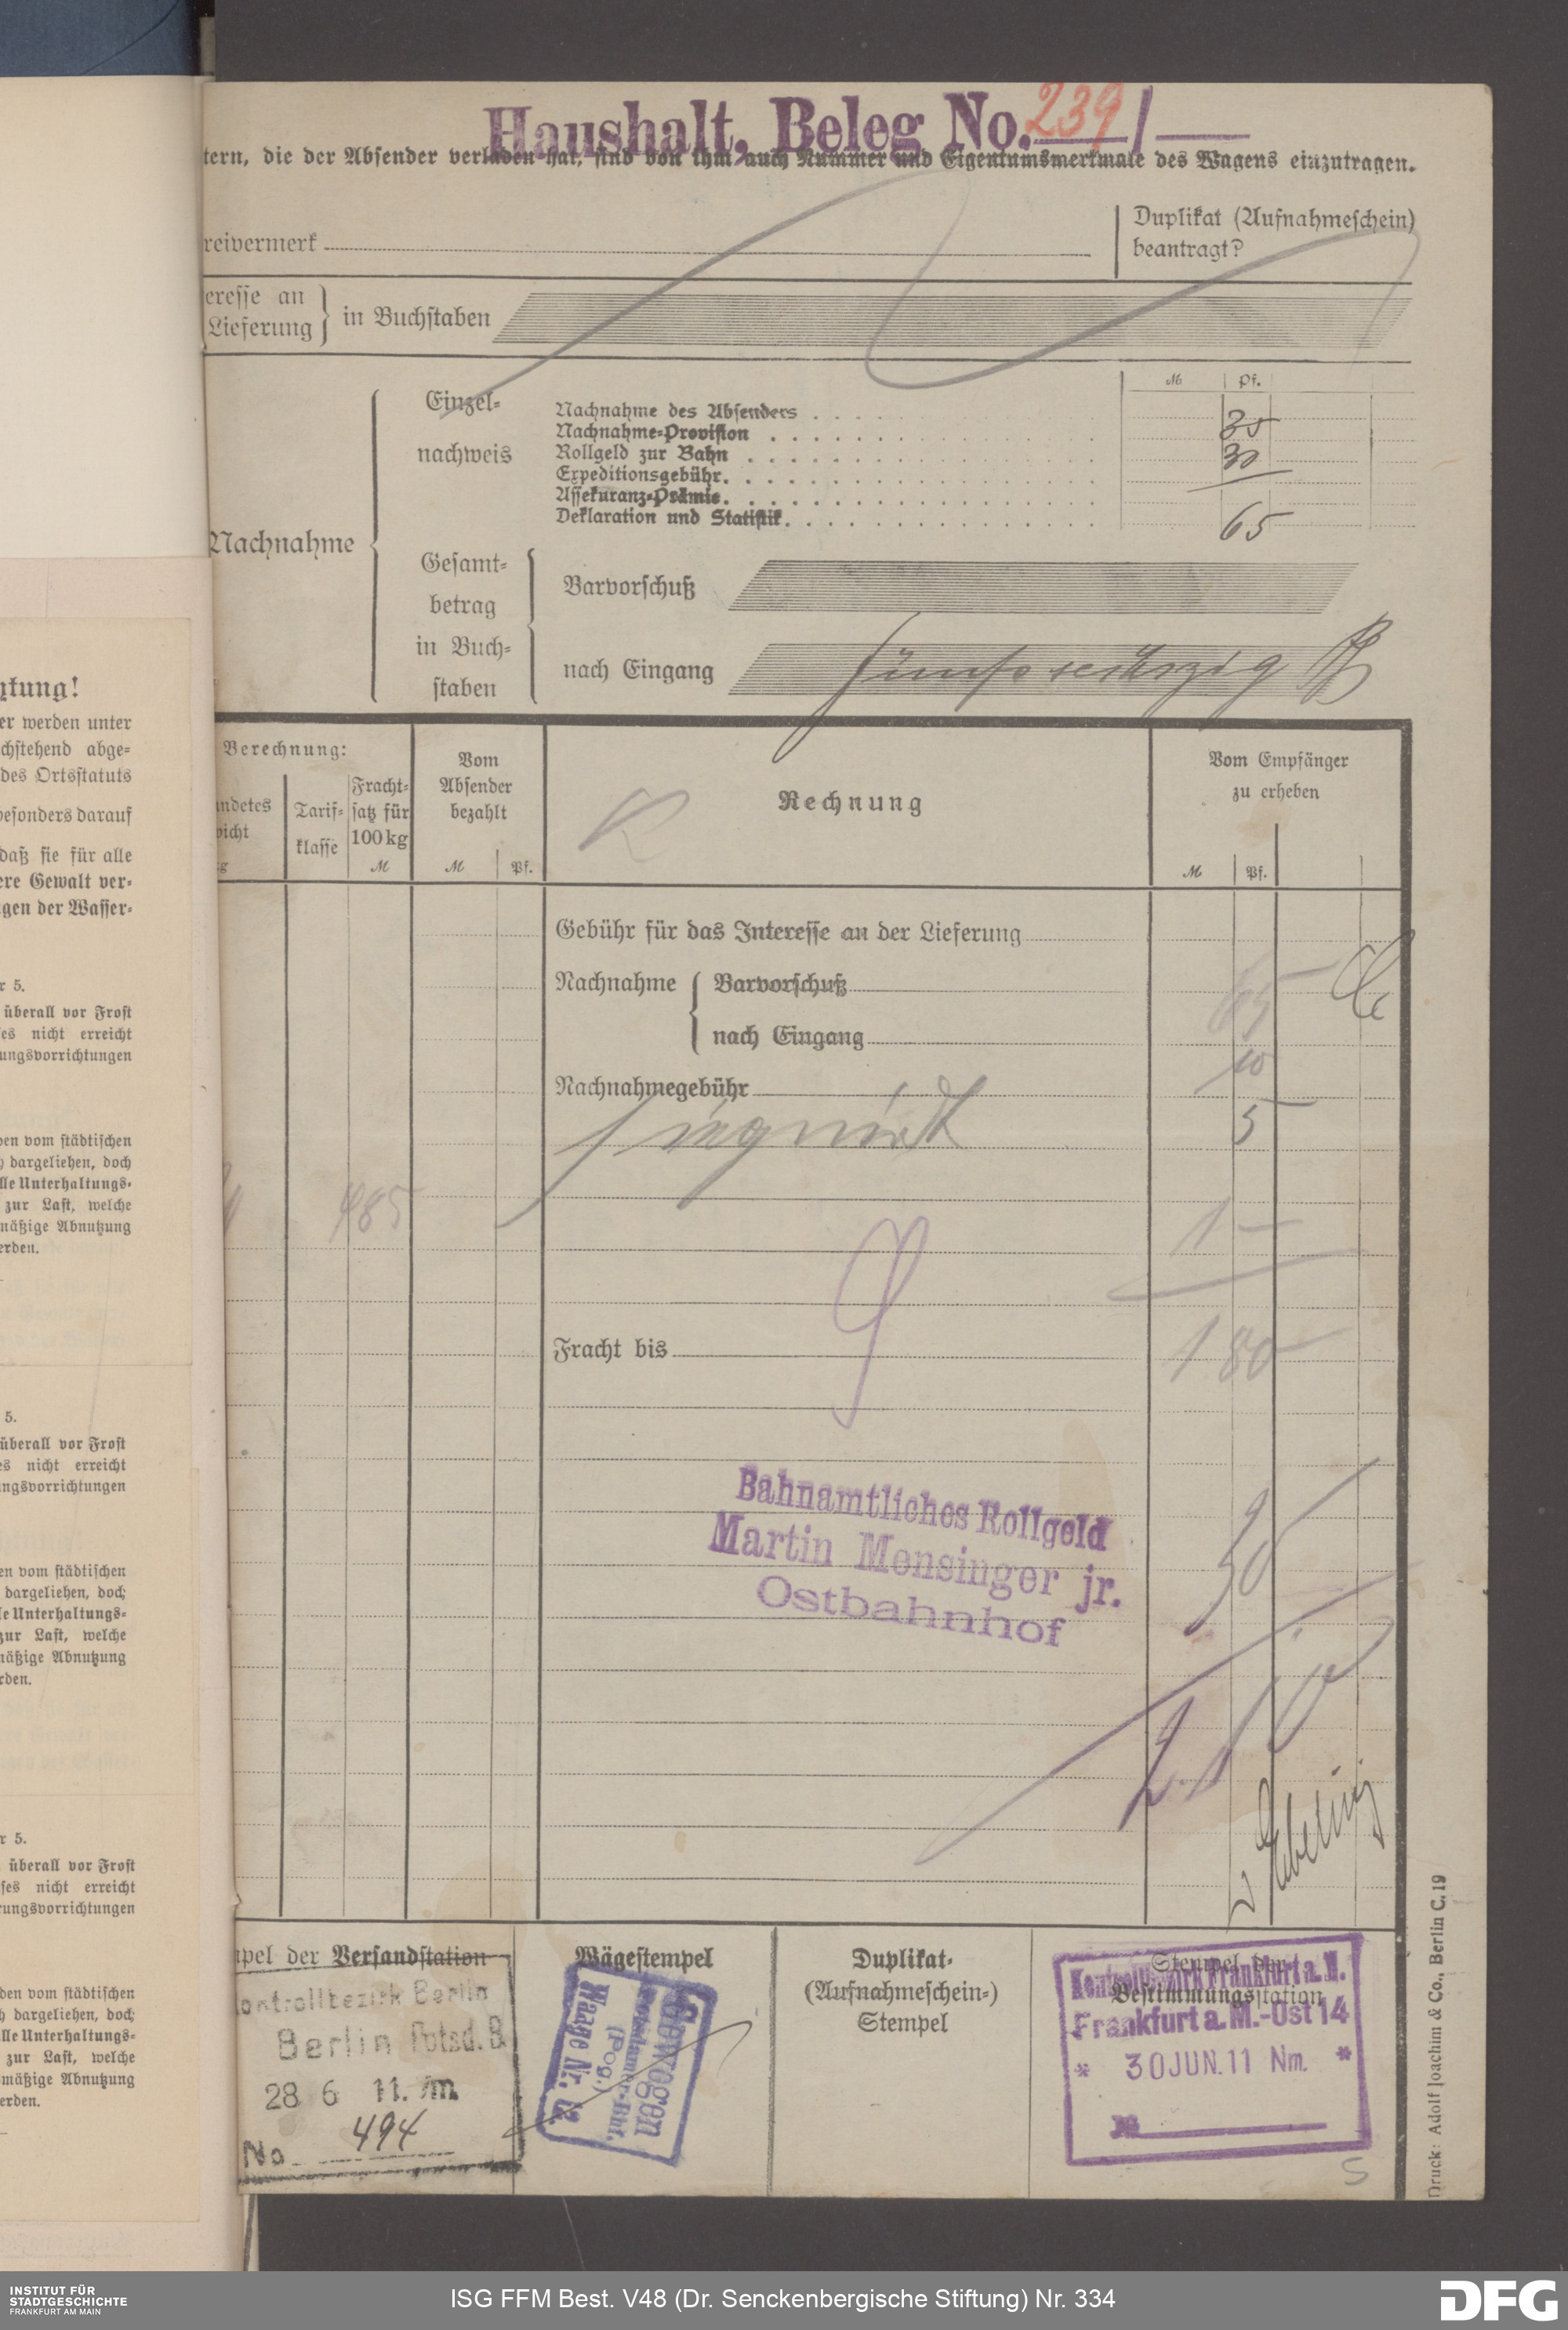 Haushalt, Beleg No. 239/
tern, die der Absender verladen hat, sind von ihm auch Nummer und Eigentumsmerkmale des Wagens einzutragen.
reivermerk
Duplikat (Aufnahmeschein)
beantragt?
eresse an
Lieferung
in Buchstaben
Nachnahme
Einzel-
nachweis
M Pf.
Nachnahme des Absenders 35
Nachnahme-Provision
Rollgeld zur Bahn 30
Expeditionsgebühr
Assekuranz-Prämie
Deklaration und Statistik 65
Gesamt-
betrag
in Buch-
staben
Barvorschuß
nach Eingang
Berechnung:
ndetes
icht
Tarif-
klasse
Fracht-
satz für
100 kg
M
Vom
Absender
bezahlt
M Pf.
Rechnung
Vom Empfänger
zu erheben
M Pf.
Gebühr für das Interesse an der Lieferung
Nachnahme
Barvorschuß 65
nach Eingang
10
Nachnahmegebühr
5
485
1 –
Fracht bis 1 80
Bahnamtliches Rollgeld
Martin Mensinger jr.
Ostbahnhof
30
2.10
Ebeling
mpel der Versandstation
Kontrollbezirk Berlin
Berlin Potsd. B
28 6 11.
No 494
Wägestempel
Gewogen
Potsdamer-Bhf.
(Pog.)
Waage Nr.
Duplikat-
(Aufnahmeschein-)
Stempel
Stempel der
Bestimmungsstation
Kontrollbezirk Frankfurt a. M.
Frankfurt a. M.-Ost 14
* 30 JUN. 11 Nm. *
No
5
Druck: Adolf Joachim & Co., Berlin C. 19
htung!
er werden unter
chstehend abge-
des Ortsstatuts
besonders darauf
daß sie für alle
ere Gewalt ver-
gen der Wasser-
r 5.
überall vor Frost
es nicht erreicht
ungsvorrichtungen
en vom städtischen
dargeliehen, doch
lle Unterhaltungs-
zur Last, welche
mäßige Abnutzung
erden.
5.
überall vor Frost
es nicht erreicht
ngsvorrichtungen
en vom städtischen
dargeliehen, doch
le Unterhaltungs-
zur Last, welche
mäßige Abnutzung
rden.
r 5.
überall vor Frost
ses nicht erreicht
rungsvorrichtungen
den vom städtischen
h dargeliehen, doch
lle Unterhaltungs-
zur Last, welche
mäßige Abnutzung
erden.
INSTITUT FÜR
STADTGESCHICHTE
FRANKFURT AM MAIN
ISG FFM Best. V48 (Dr. Senckenbergische Stiftung) Nr. 334
DFG